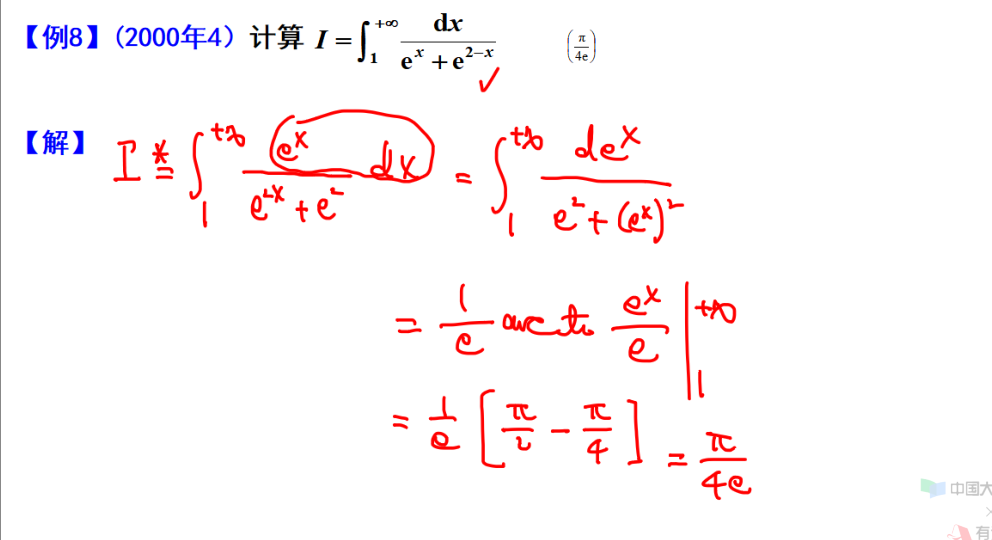 【例8】(2000年4) 计算 I = ∫₁^{+∞} dx / (eˣ + e^{2−x}) (π/4e)
【解】 I = ∫₁^{+∞} eˣ dx / (e^{2x} + e²) = ∫₁^{+∞} deˣ / (e² + (eˣ)²)
= 1/e arctan eˣ/e |₁^{+∞}
= 1/e [π/2 − π/4] = π/4e
中国大
有